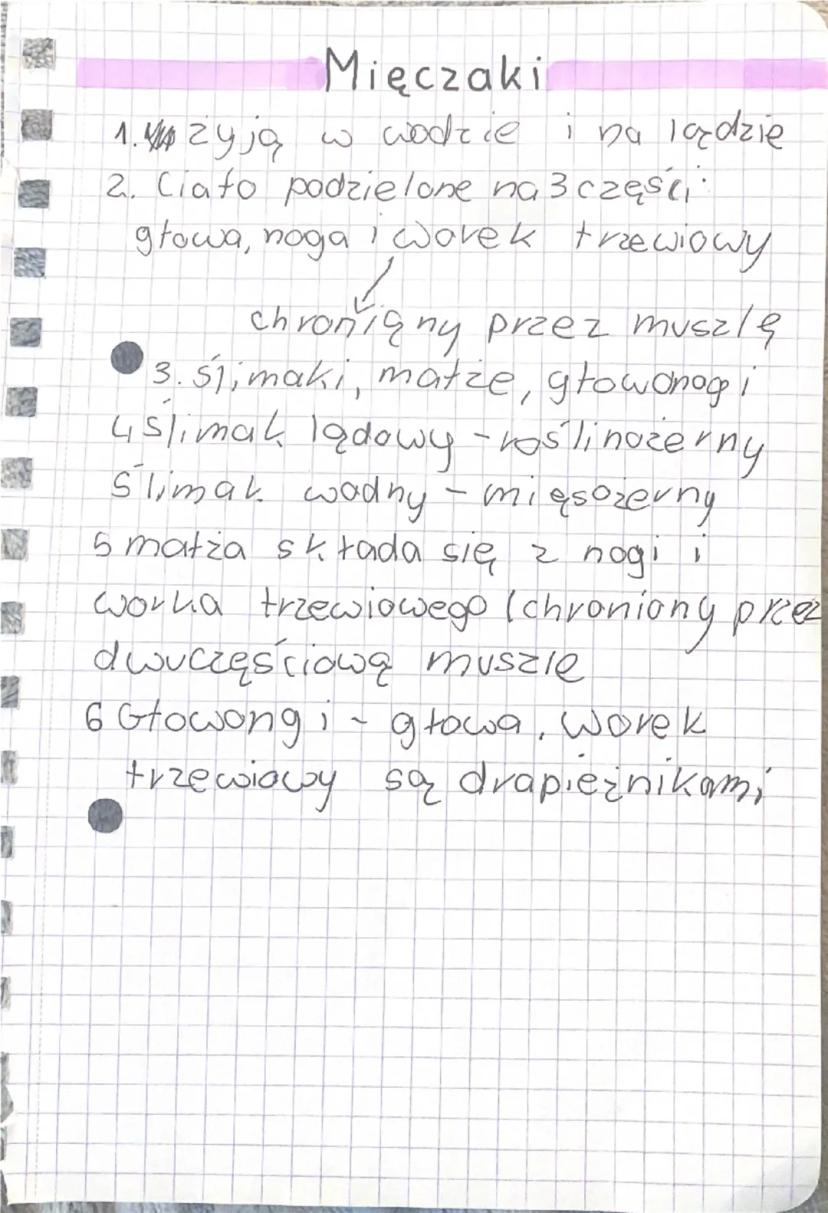 Mięczaki
1. żyją w wodzie i na lądzie
2. Ciało podzielone na 3 części:
głowa, noga i worek trzewiowy
chroniąny przez muszlę
3. ślimaki, małże, głowonogi
4 ślimak lądowy - roślinożerny
ślimak wodny - mięsożerny
5 małża składa się z nogi i
worka trzewiowego (chroniony przez
dwuczęściową muszle
6 Głowongi - głowa, worek
trzewiowy są drapieżnikami